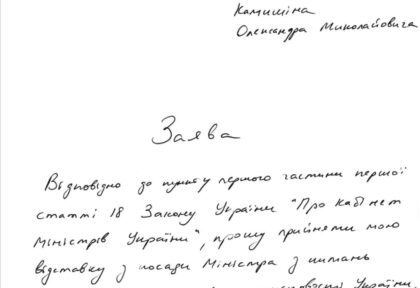 Камишіна
Олександра Миколайовича
Заява
Відповідно до пункту першого частини першої
статті 18 Закону України "Про Кабінет
Міністрів України", прошу прийняти мою
відставку з посади Міністра з питань
України.